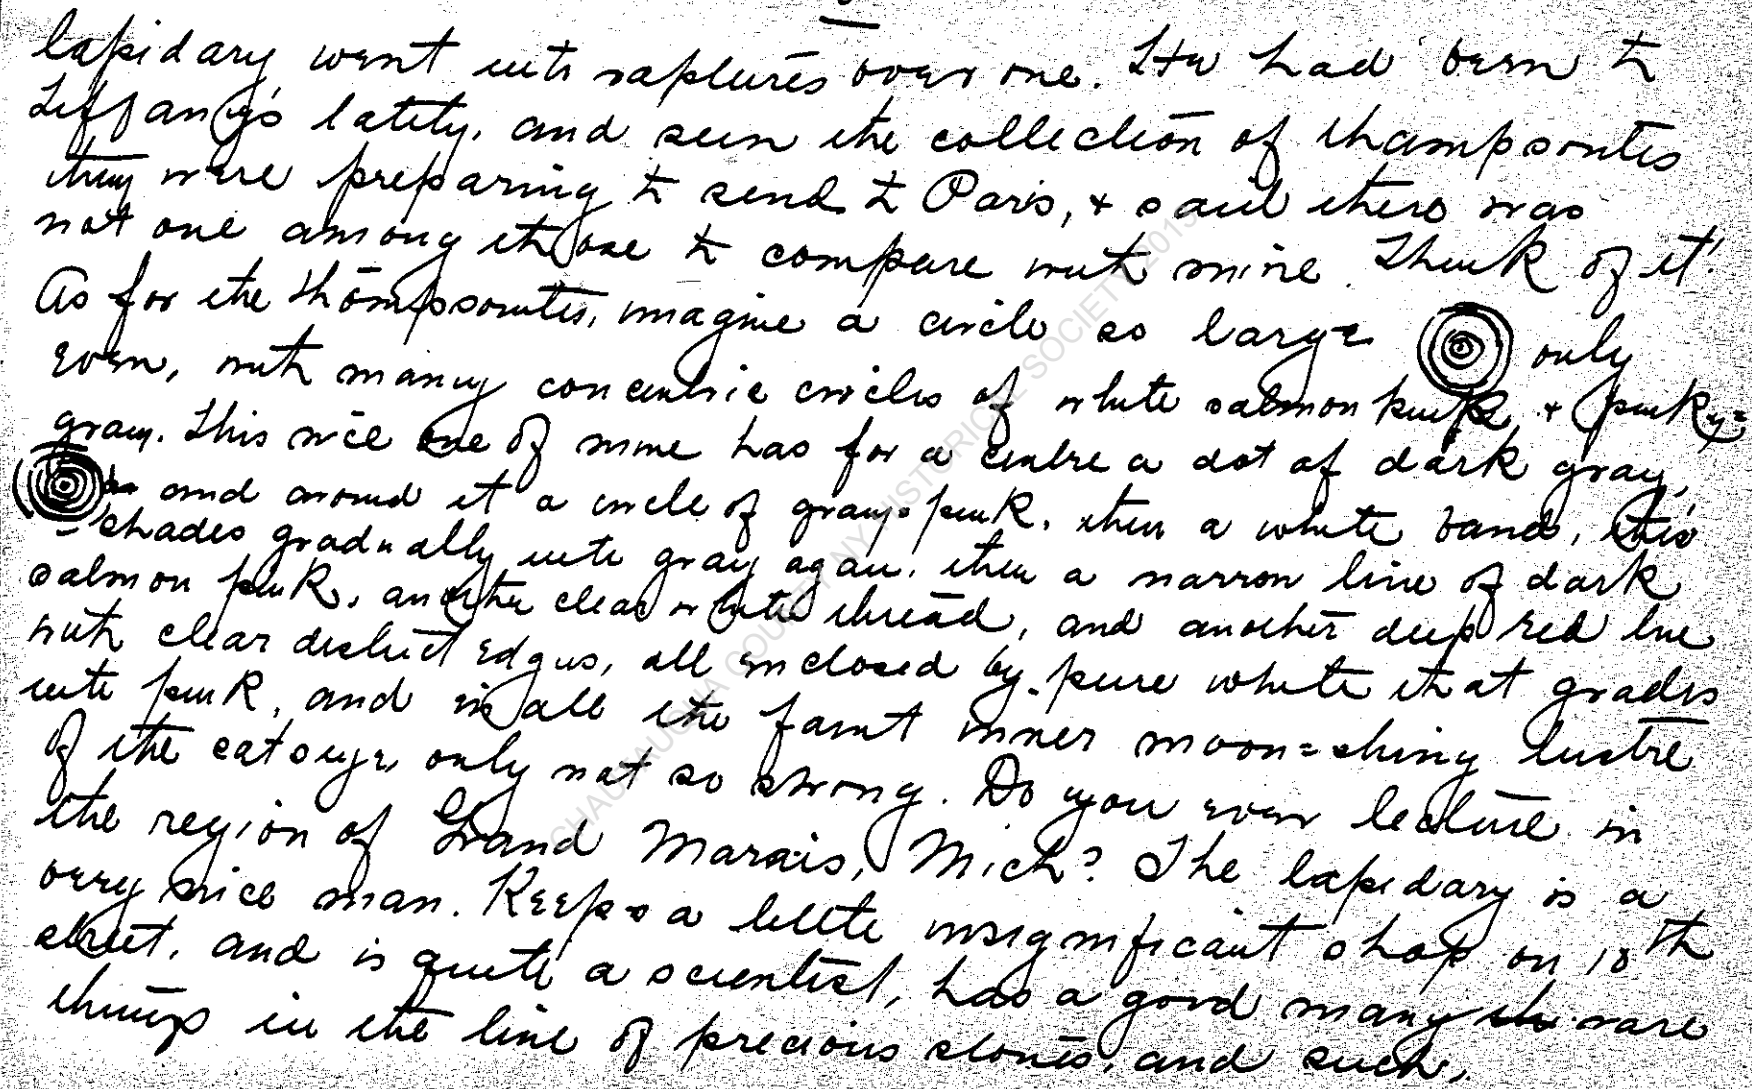 lapidary went into raptures over one. He had been to
Tiffany's lately, and seen the collection of thompsonites
they were preparing to send to Paris, + said there was
not one among those to compare with mine. Think of it!
As for the thompsonites, imagine a circle so large only
even, with many concentric circles of white salmon pink, + pinky=
gray. This nice one of mine has for a centre a dot of dark gray,
and around it a circle of gray=pink, then a white band, this
shades gradually into gray again, then a narrow line of dark
salmon pink, another clear white thread, and another deep red line
with clear distinct edges, all enclosed by pure white that grades
into pink, and in all the faint inner moon=shiny lustre
of the catseye, only not so strong. Do you ever lecture in
the region of Grand Marais, Mich? The lapidary is a
very nice man. Keeps a little insignificant shop on 18th
street, and is quite a scientist, has a good many rare
things in the line of precious stones, and such,
CHAUTAUQUA COUNTY NY HISTORICAL SOCIETY 2013